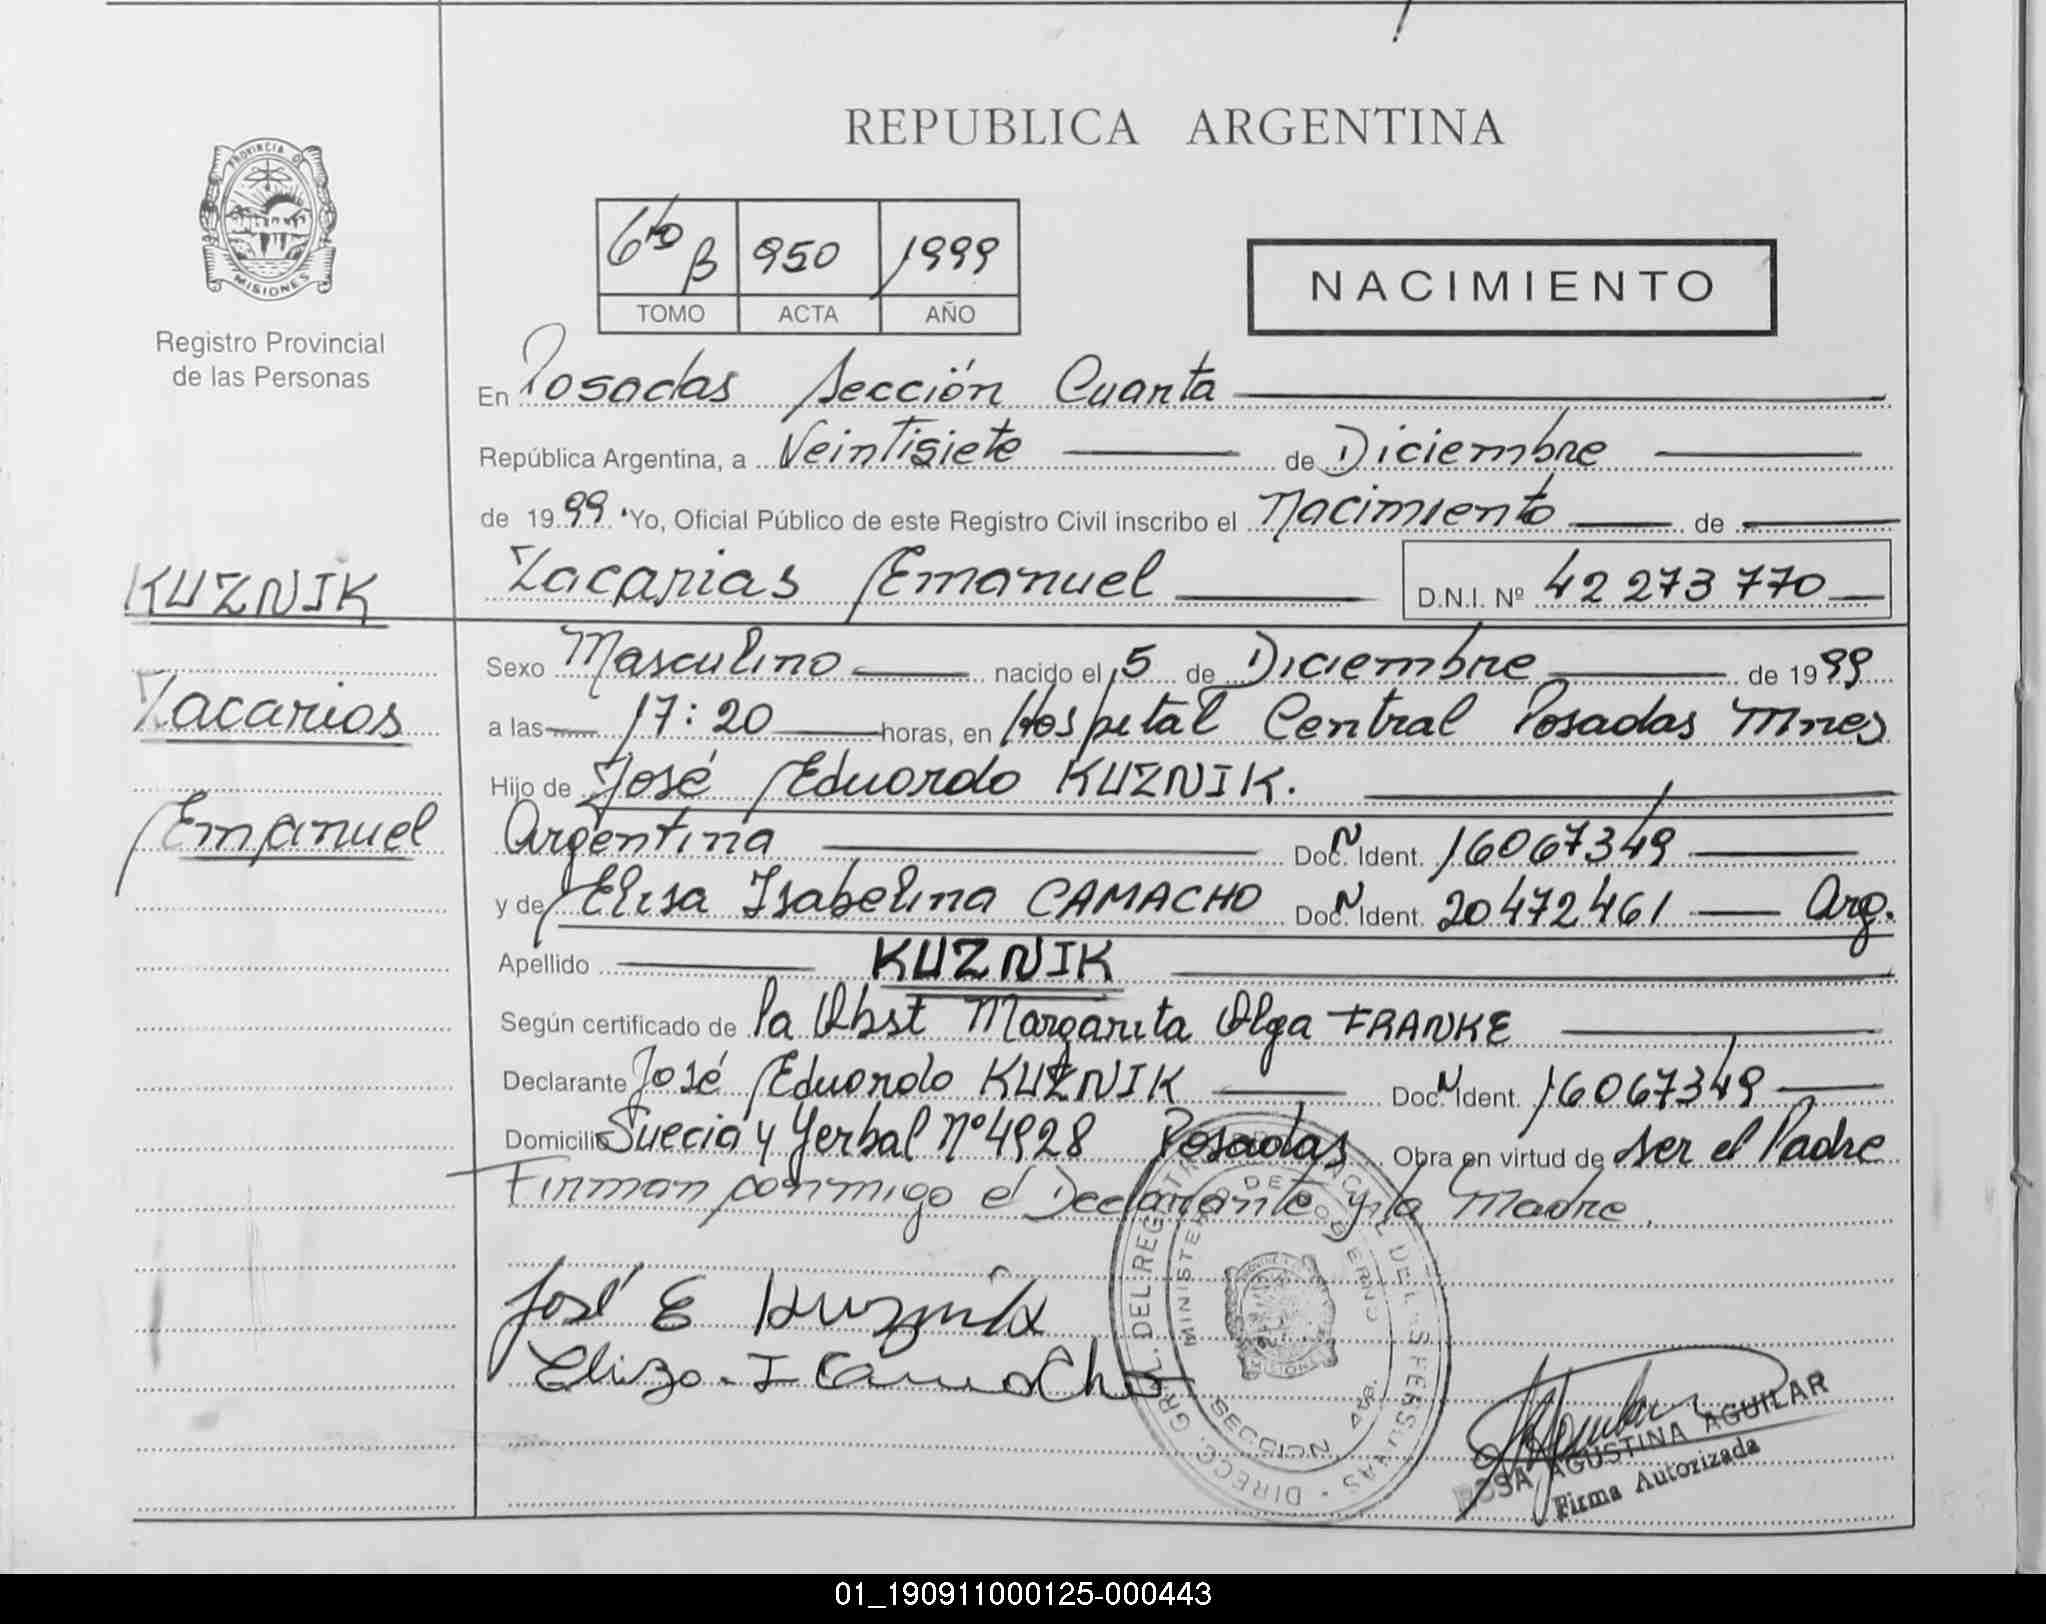 REPUBLICA ARGENTINA
PROVINCIA DE
MISIONES
Registro Provincial
de las Personas
6to B 950 1999
TOMO ACTA AÑO
NACIMIENTO
En Posadas Sección Cuarta
República Argentina, a Veintisiete de Diciembre
de 1999 Yo, Oficial Público de este Registro Civil inscribo el Nacimiento de
KUZNIK
Zacarias Emanuel D.N.I. Nº 42 273 770
Sexo Masculino nacido el 5 de Diciembre de 1999
Zacarias
a las 17:20 horas, en Hospital Central Posadas Mnes
Hijo de José Eduardo KUZNIK.
Emanuel
Argentina Doc. N Ident. 16067349
y de Elisa Isabelina CAMACHO Doc. N Ident. 20472461 Arg.
Apellido KUZNIK
Según certificado de la Obst Margarita Olga FRANKE
Declarante José Eduardo KUZNIK Doc. N Ident. 16067349
Domicilio Suecia y Yerbal Nº 4928 Posadas Obra en virtud de ser el Padre
Firman conmigo el Declarante y la Madre
José E Kuznik
Eliza. I Camacho
DIRECC. GRAL. DEL REGISTRO PROVINCIAL DE LAS PERSONAS
MINISTERIO DE GOBIERNO
SECCION 4ta.
ROSA AGUSTINA AGUILAR
Firma Autorizada
01_190911000125-000443